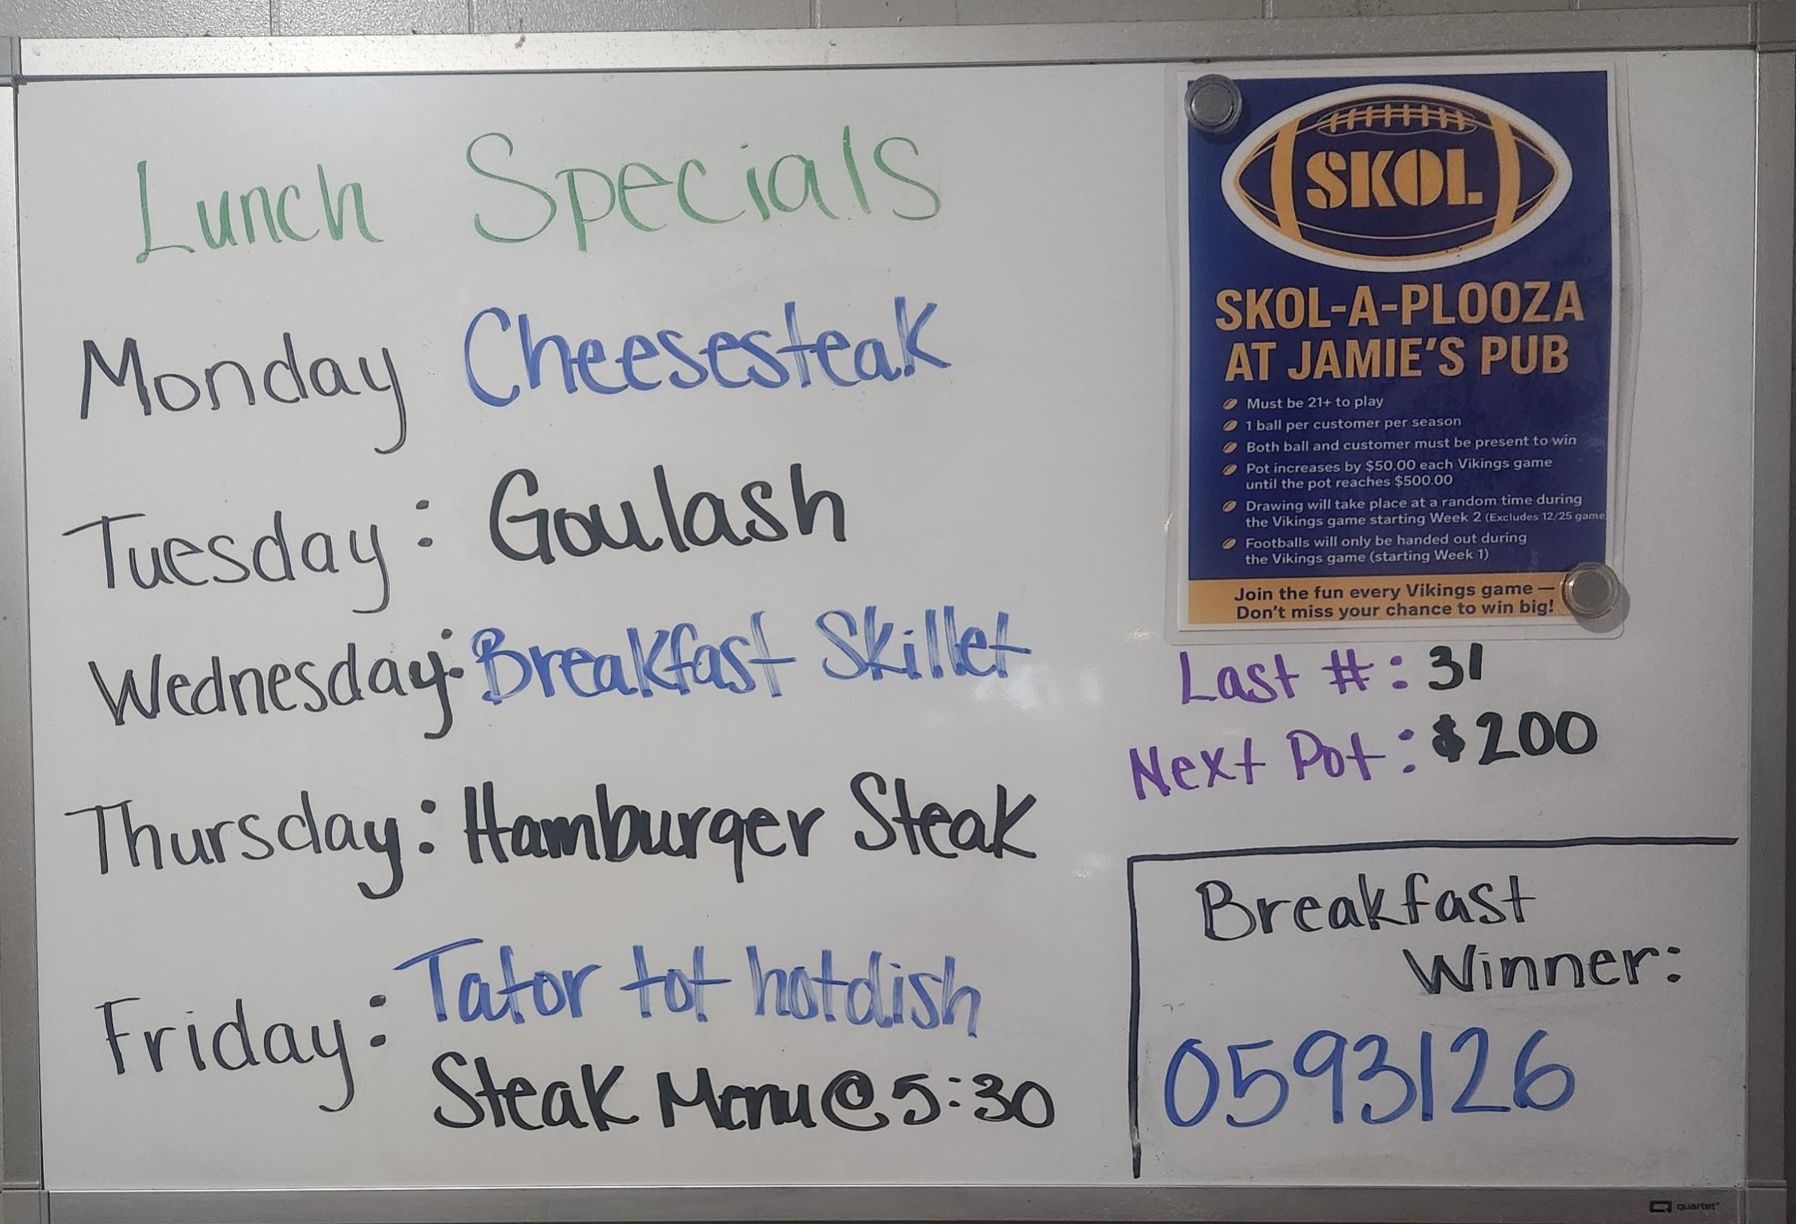 Lunch Specials
Monday Cheesesteak
Tuesday: Goulash
Wednesday: Breakfast Skillet
Thursday: Hamburger Steak
Friday: Tator tot hotdish
Steak Menu @ 5:30
SKOL
SKOL-A-PLOOZA
AT JAMIE'S PUB
Must be 21+ to play
1 ball per customer per season
Both ball and customer must be present to win
Pot increases by $50.00 each Vikings game
until the pot reaches $500.00
Drawing will take place at a random time during
the Vikings game starting Week 2 (Excludes 12/25 game
Footballs will only be handed out during
the Vikings game (starting Week 1)
Join the fun every Vikings game —
Don't miss your chance to win big!
Last #: 31
Next Pot: $200
Breakfast
Winner:
0593126
quartet